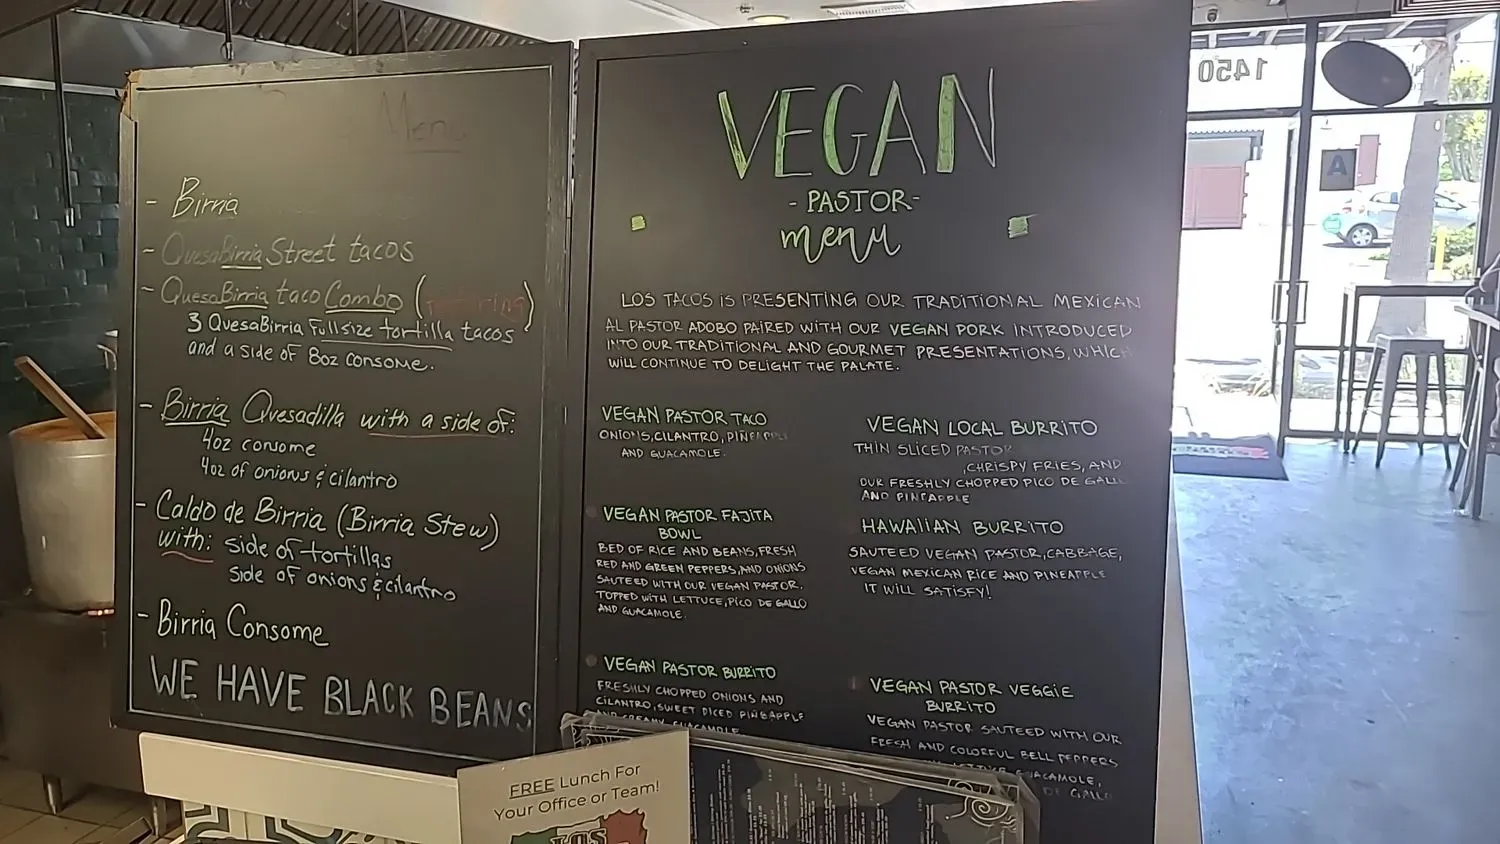 Menu
- Birria
- QuesaBirria Street tacos
- QuesaBirria taco Combo (
3 QuesaBirria Fullsize tortilla tacos
and a side of 8oz consome.
- Birria Quesadilla with a side of:
4oz consome
4oz of onions & cilantro
- Caldo de Birria (Birria Stew)
with: side of tortillas
side of onions & cilantro
- Birria Consome
WE HAVE BLACK BEANS
VEGAN
- PASTOR -
menu
LOS TACOS IS PRESENTING OUR TRADITIONAL MEXICAN
AL PASTOR ADOBO PAIRED WITH OUR VEGAN PORK INTRODUCED
INTO OUR TRADITIONAL AND GOURMET PRESENTATIONS, WHICH
WILL CONTINUE TO DELIGHT THE PALATE.
VEGAN PASTOR TACO
ONIONS, CILANTRO, PINEAPPLE
AND GUACAMOLE.
VEGAN PASTOR FAJITA
BOWL
BED OF RICE AND BEANS, FRESH
RED AND GREEN PEPPERS, AND ONIONS
SAUTEED WITH OUR VEGAN PASTOR.
TOPPED WITH LETTUCE, PICO DE GALLO
AND GUACAMOLE.
VEGAN PASTOR BURRITO
FRESHLY CHOPPED ONIONS AND
CILANTRO, SWEET DICED PINEAPPLE
AND CREAMY GUACAMOLE
VEGAN LOCAL BURRITO
THIN SLICED PASTOR
, CHRISPY FRIES, AND
OUR FRESHLY CHOPPED PICO DE GALLO
AND PINEAPPLE
HAWAIIAN BURRITO
SAUTEED VEGAN PASTOR, CABBAGE,
VEGAN MEXICAN RICE AND PINEAPPLE
IT WILL SATISFY!
VEGAN PASTOR VEGGIE
BURRITO
VEGAN PASTOR SAUTEED WITH OUR
FRESH AND COLORFUL BELL PEPPERS
GUACAMOLE,
DE GALLO
1450
A
FREE Lunch For
Your Office or Team!
LOS